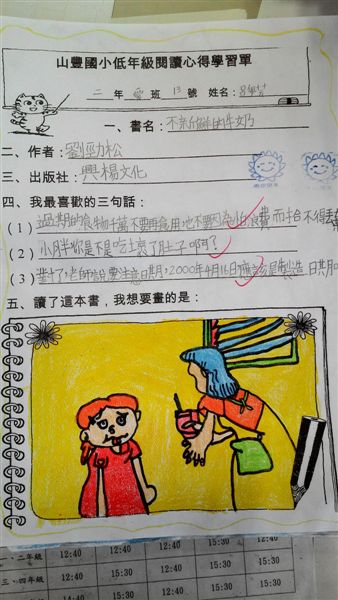 山豐國小低年級閱讀心得學習單
二 年 愛 班 13 號 姓名:
一、書名:不新鮮的牛奶
二、作者:劉勁松
三、出版社:興楊文化
四、我最喜歡的三句話:
(1)過期的食物千萬不要再食用,也不要因為小的浪費而捨不得丟
(2)小胖你是不是吃壞了肚子啊?
(3)對了,老師說要注意日期,2000年4月16日應該是製造日期
五、讀了這本書,我想要畫的是:
一、二年級 12:40 12:40 12:40
三、四年級 12:40 15:30 12:40 15:30
15:30 15:30